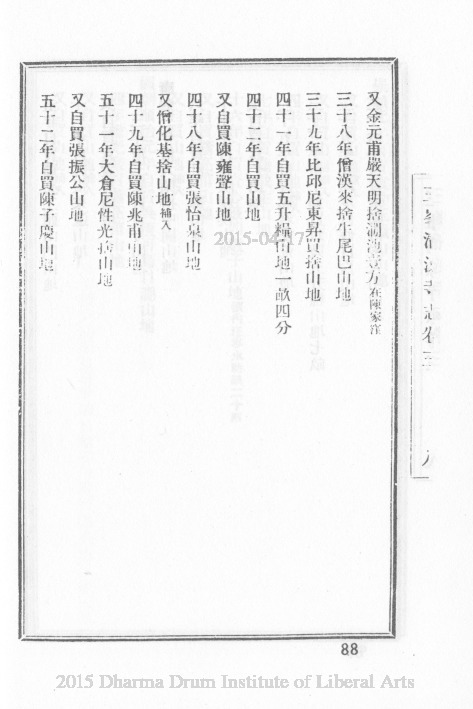 又金元甫嚴天明捨澗池壹方在陳家窪
三十八年僧漢來捨牛尾巴山地
三十九年比邱尼東昇買捨山地
四十一年自買五升糧山地一畝四分
四十二年自買山地
又自買陳雍聲山地
四十八年自買張怡泉山地
又僧化基捨山地補入
四十九年自買陳兆甫山地
五十一年大倉尼性光捨山地
又自買張振公山地
五十二年自買陳子慶山地
寺志卷三
八
88
2015-04-17
2015 Dharma Drum Institute of Liberal Arts